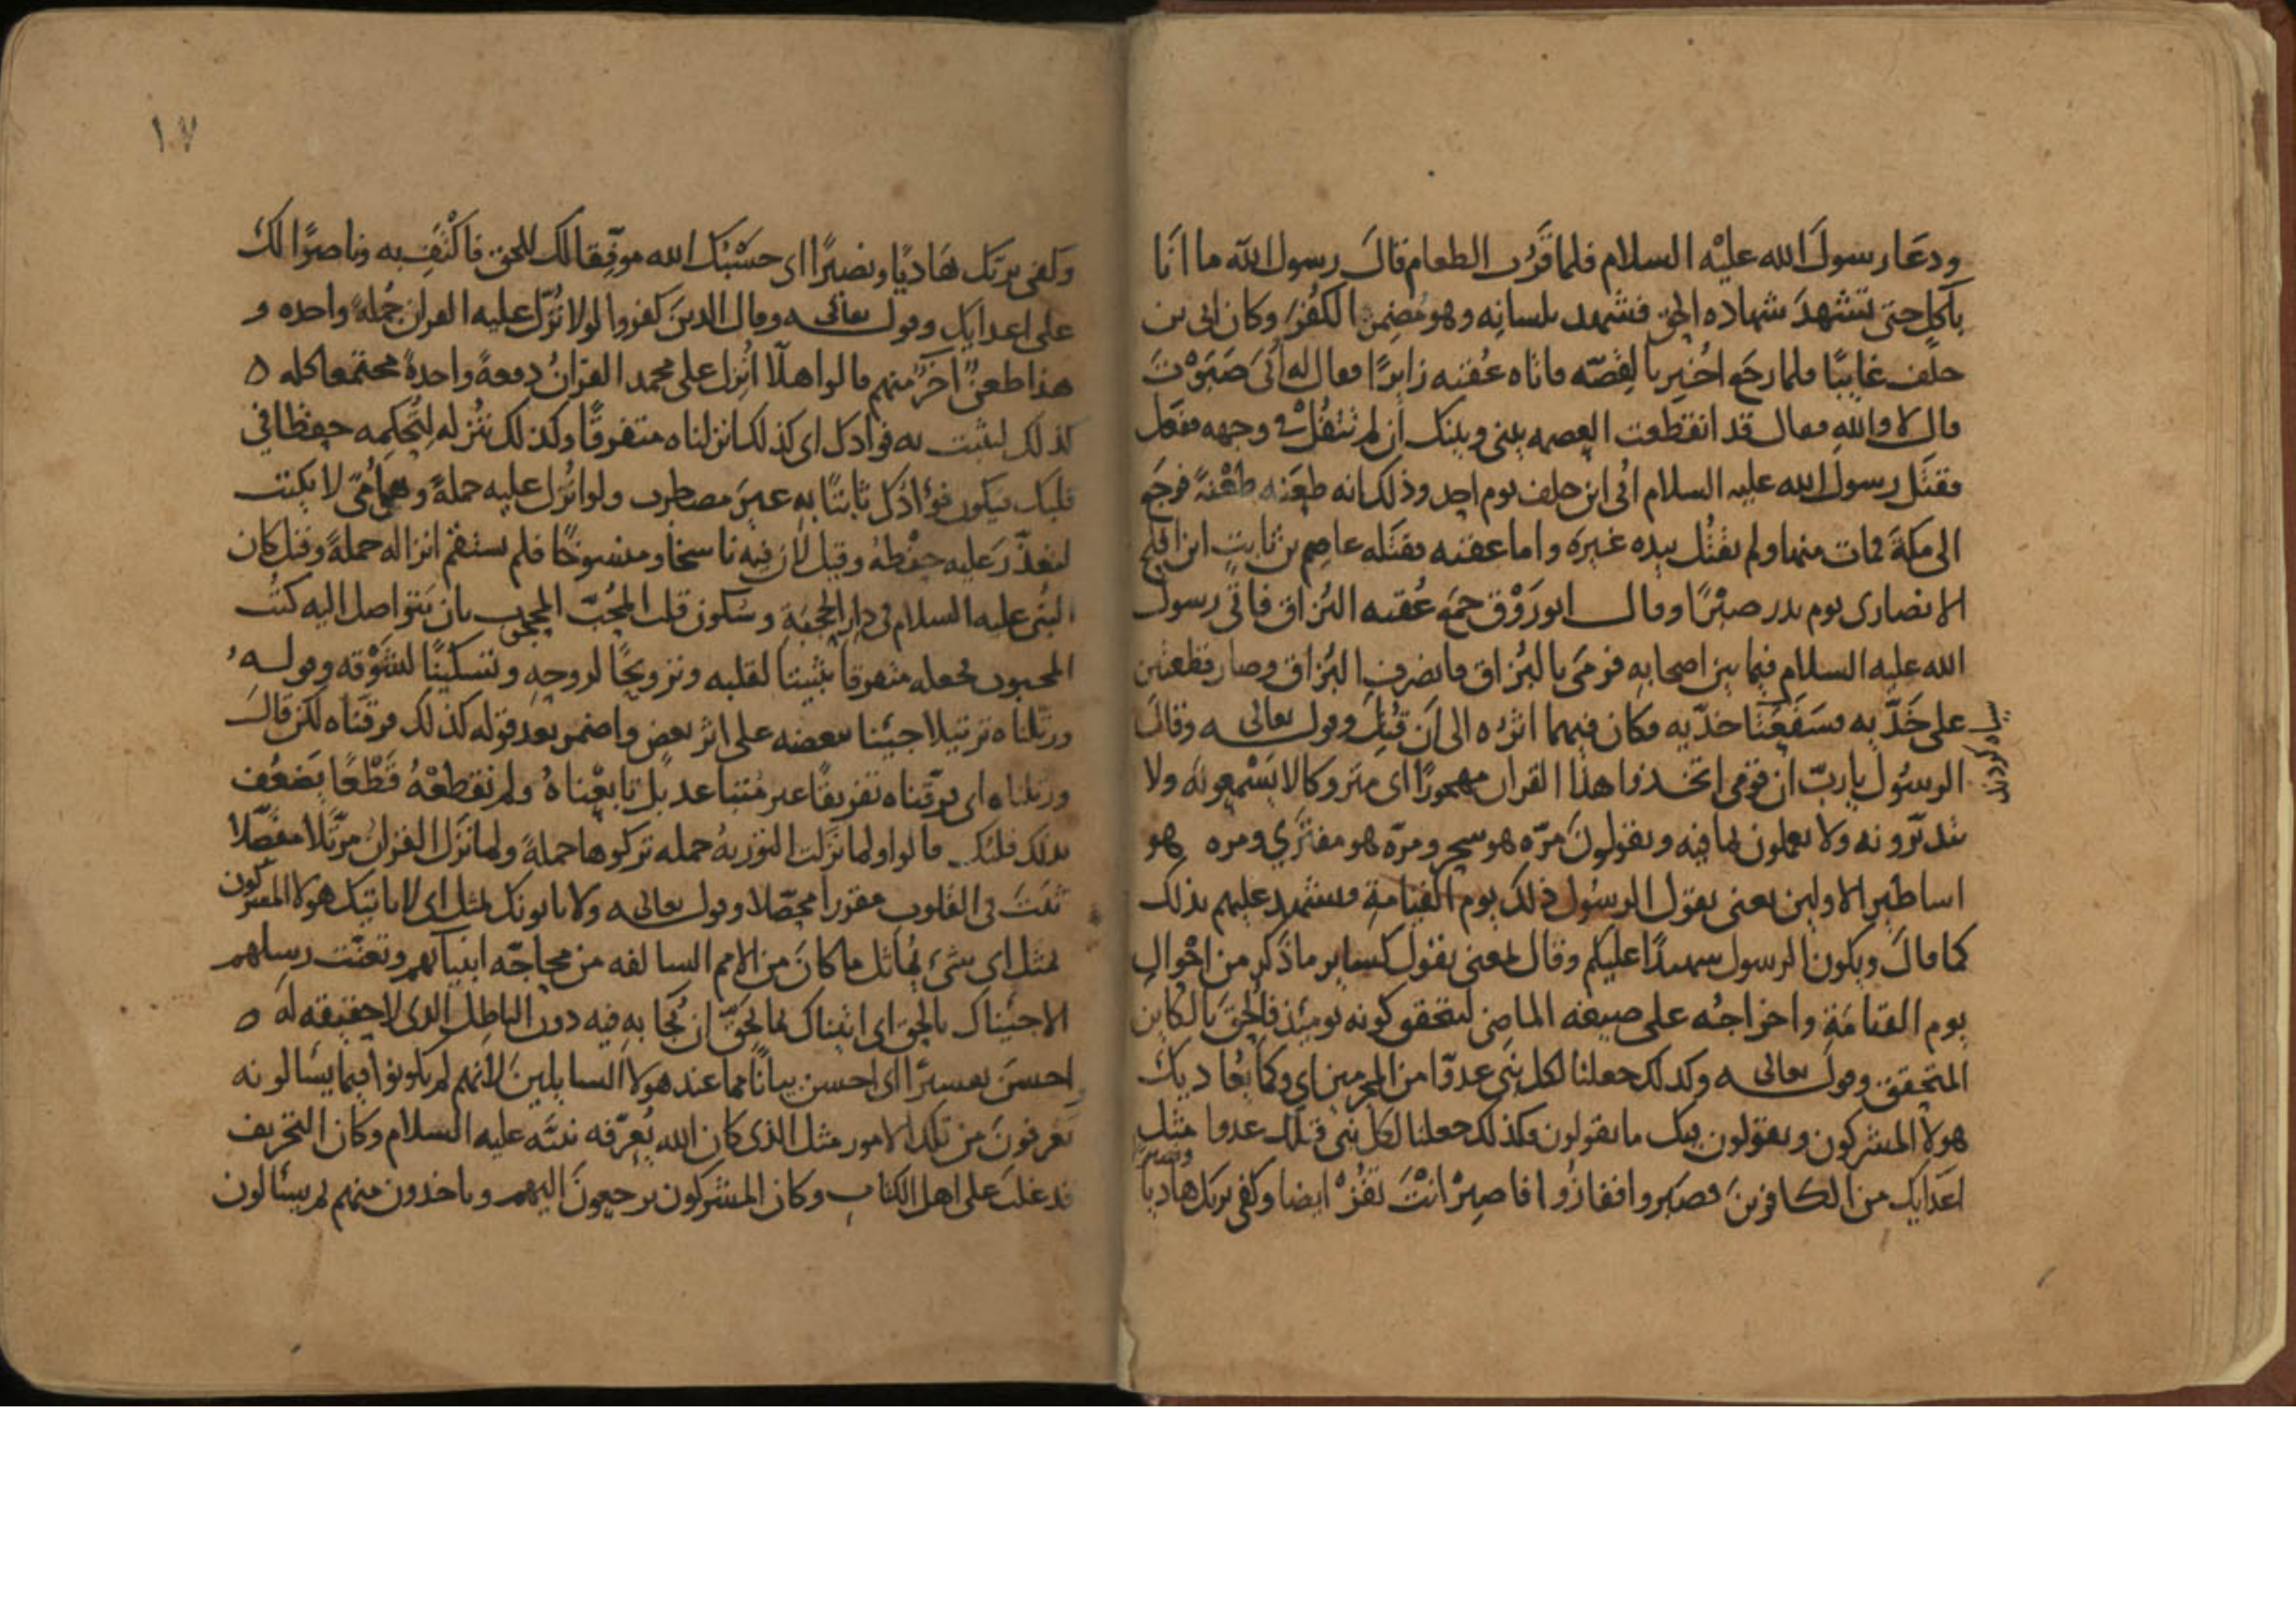 ودعا رسول الله عليه السلام فلما قرب الطعام قال رسول الله ما انا
باكل حتى تشهد شهاده الحق فشهد بلسانه وهو مضمر الكفر وكان ابى بن
خلف غايبا فلما رجع اخبر بالقصه فاتاه عقبه زايرا فقال له ابى صبوت
قال لا والله فقال قد انقطعت العصمه بينى وبينك ان لم تتفل فى وجهه ففعل
فقتل رسول الله عليه السلام ابى ابن خلف يوم احد وذلك انه طعنه طعنة فرجع
الى مكة فمات منها ولم يقتل بيده غيره واما عقبه فقتله عاصم بن ثابت ابن افلح
الانصارى يوم بدر صبرا وقال ابو روق جمع عقبه البزاق فاتى رسول
الله عليه السلام فيما بين اصحابه فرمى بالبزاق فانصرف البزاق وصار قطعتين
على خديه فسفعتا خديه فكان فيهما اثره الى ان قتل وقول تعالى وقال
الرسول يا رب ان قومى اتخذوا هذا القران مهجورا اى متروكا لا يسمعونه ولا
يتدبرونه ولا يعملون بما فيه ويقولون مرة هو سحر ومرة هو مفترى ومره هو
اساطير الاولين يعنى يقول الرسول ذلك يوم القيامة ويشهد عليهم بذلك
كما قال ويكون الرسول شهيدا عليكم وقال لمعنى يقول كساير ما ذكر من احوال
يوم القيامة واخراجه على صيغه الماضى لتحقق كونه يومئذ فالحق بالكاين
المتحقق وقول تعالى وكذلك جعلنا لكل نبى عدوا من المجرمين اى وكما يعاديك
هولا المشركون ويقولون فيك ما يقولون فكذلك جعلنا لكل نبى قبلك عدوا مثل
اعدايك من الكافرين فصبروا ففازوا فاصبر انت تفز ايضا وكفى بربك هاديا ونصيرا
١٧
وكفى بربك هاديا ونصيرا اى حسبك الله موفقا لك للحق فاكتف به وناصرا لك
على اعدايك وقول تعالى وقال الذين كفروا لولا نزل عليه القران جملة واحده و
هذا طعن اخر منهم قالوا هلا انزل على محمد القران دفعة واحدة مجتمعا كله ه
كذلك لنثبت به فوادك اى كذلك انزلناه متفرقا وكذلك ننزله لتحكمه حفظا فى
قلبك فيكون فؤادك ثابتا به غير مضطرب ولو انزل عليه جملة وهو امى لا يكتب
لتعذر عليه حفظه وقيل لان فيه ناسخا ومنسوخا فلم يستقم انزاله جملة وقيل كان
النبى عليه السلام فى دار المحبة وسكون قلب المحب المحجوب بان يتواصل اليه كتب
المحبوب فجعله متفرقا تثبيتا لقلبه وترويحا لروحه وتسكينا لشوقه وقوله
ورتلناه ترتيلا اى جيئنا بعضه على اثر بعض واضمر بعد قوله كذلك فرقناه لكن قال
ورتلناه اى فرقناه تفريقا غير متباعد بل تابعناه ولم نقطعه قطعا يضعف
بذلك قلبك قالوا ولما نزلت التورية جمله تركوها جملة ولما نزل القران مرتلا مفصلا
ثبت فى القلوب مقررا محصلا وقول تعالى ولا ياتونك بمثل اى لا ياتيك هولا المشركون
بمثل اى بشىء يماثل ما كان من الامم السالفه من محاجة انبيائهم وتعنت رسلهم
الا جيئناك بالحق اى اتيناك بما يحق ان يجابه فيه دون الباطل الذى لا حقيقه له ه
واحسن تفسيرا اى احسن بيانا مما عند هولا السايلين لانهم لم يكونوا فيما يسالونه
يعرفون من تلك الامور مثل الذى كان الله يعرفه نبيه عليه السلام وكان التحريف
قد غلب على اهل الكتاب وكان المشركون يرجعون اليهم وياخذون منهم ثم يسئالون